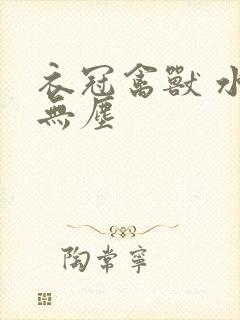 衣冠禽獸 水
無塵
陶常寧